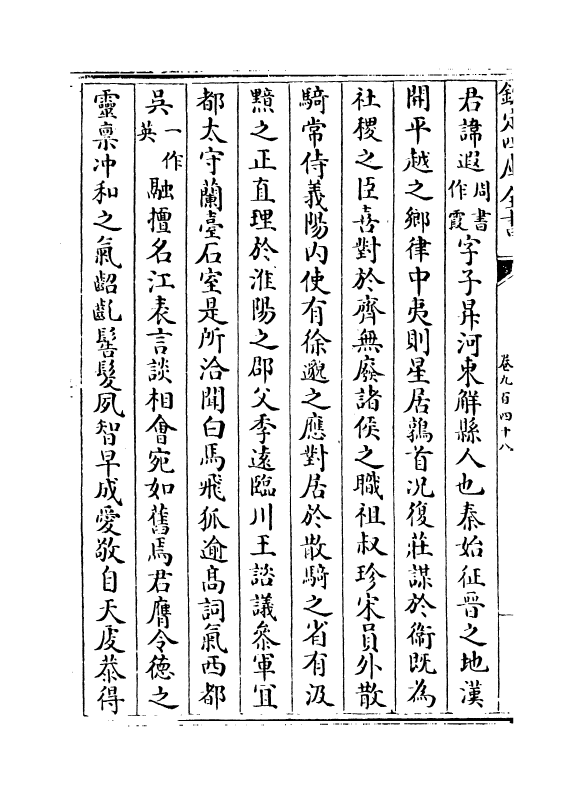 欽定四庫全書
卷九百四十八
君諱遐周書作霞字子昇河東解縣人也秦始征晉之地漢
開平越之鄉律中夷則星居鶉首况復莊謀於衞既為
社稷之臣喜對於齊無廢諸侯之職祖叔珍宋員外散
騎常侍義陽内使有徐邈之應對居於散騎之省有汲
黯之正直理於淮陽之郡父季遠臨川王諮議叅軍宜
都太守蘭臺石室是所洽聞白馬飛狐逾髙詞氣西都
吴一作英融擅名江表言談相會宛如舊焉君膺令德之
靈禀冲和之氣齠齓髫髮夙智早成愛敬自天䖍恭得